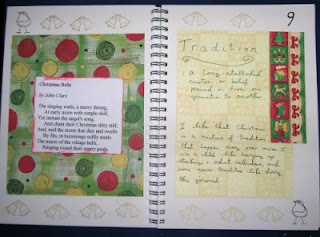 Christmas Bells
by John Clare
The singing waits, a merry throng,
At early morn with simple skill,
Yet imitate the angel's song,
And chant their Christmas ditty still;
And, mid the storm that dies and swells
By fits, in hummings softly steals
The music of the village bells,
Ringing round their merry peals.
9
Tradition
: a long-established
custom or belief
passed on from one
generation to another
I like that Christmas
is a mixture of traditions
that happen every year since I
was a child - like hanging up
stockings + advent calendars, and
some newer traditions like doing
the journal